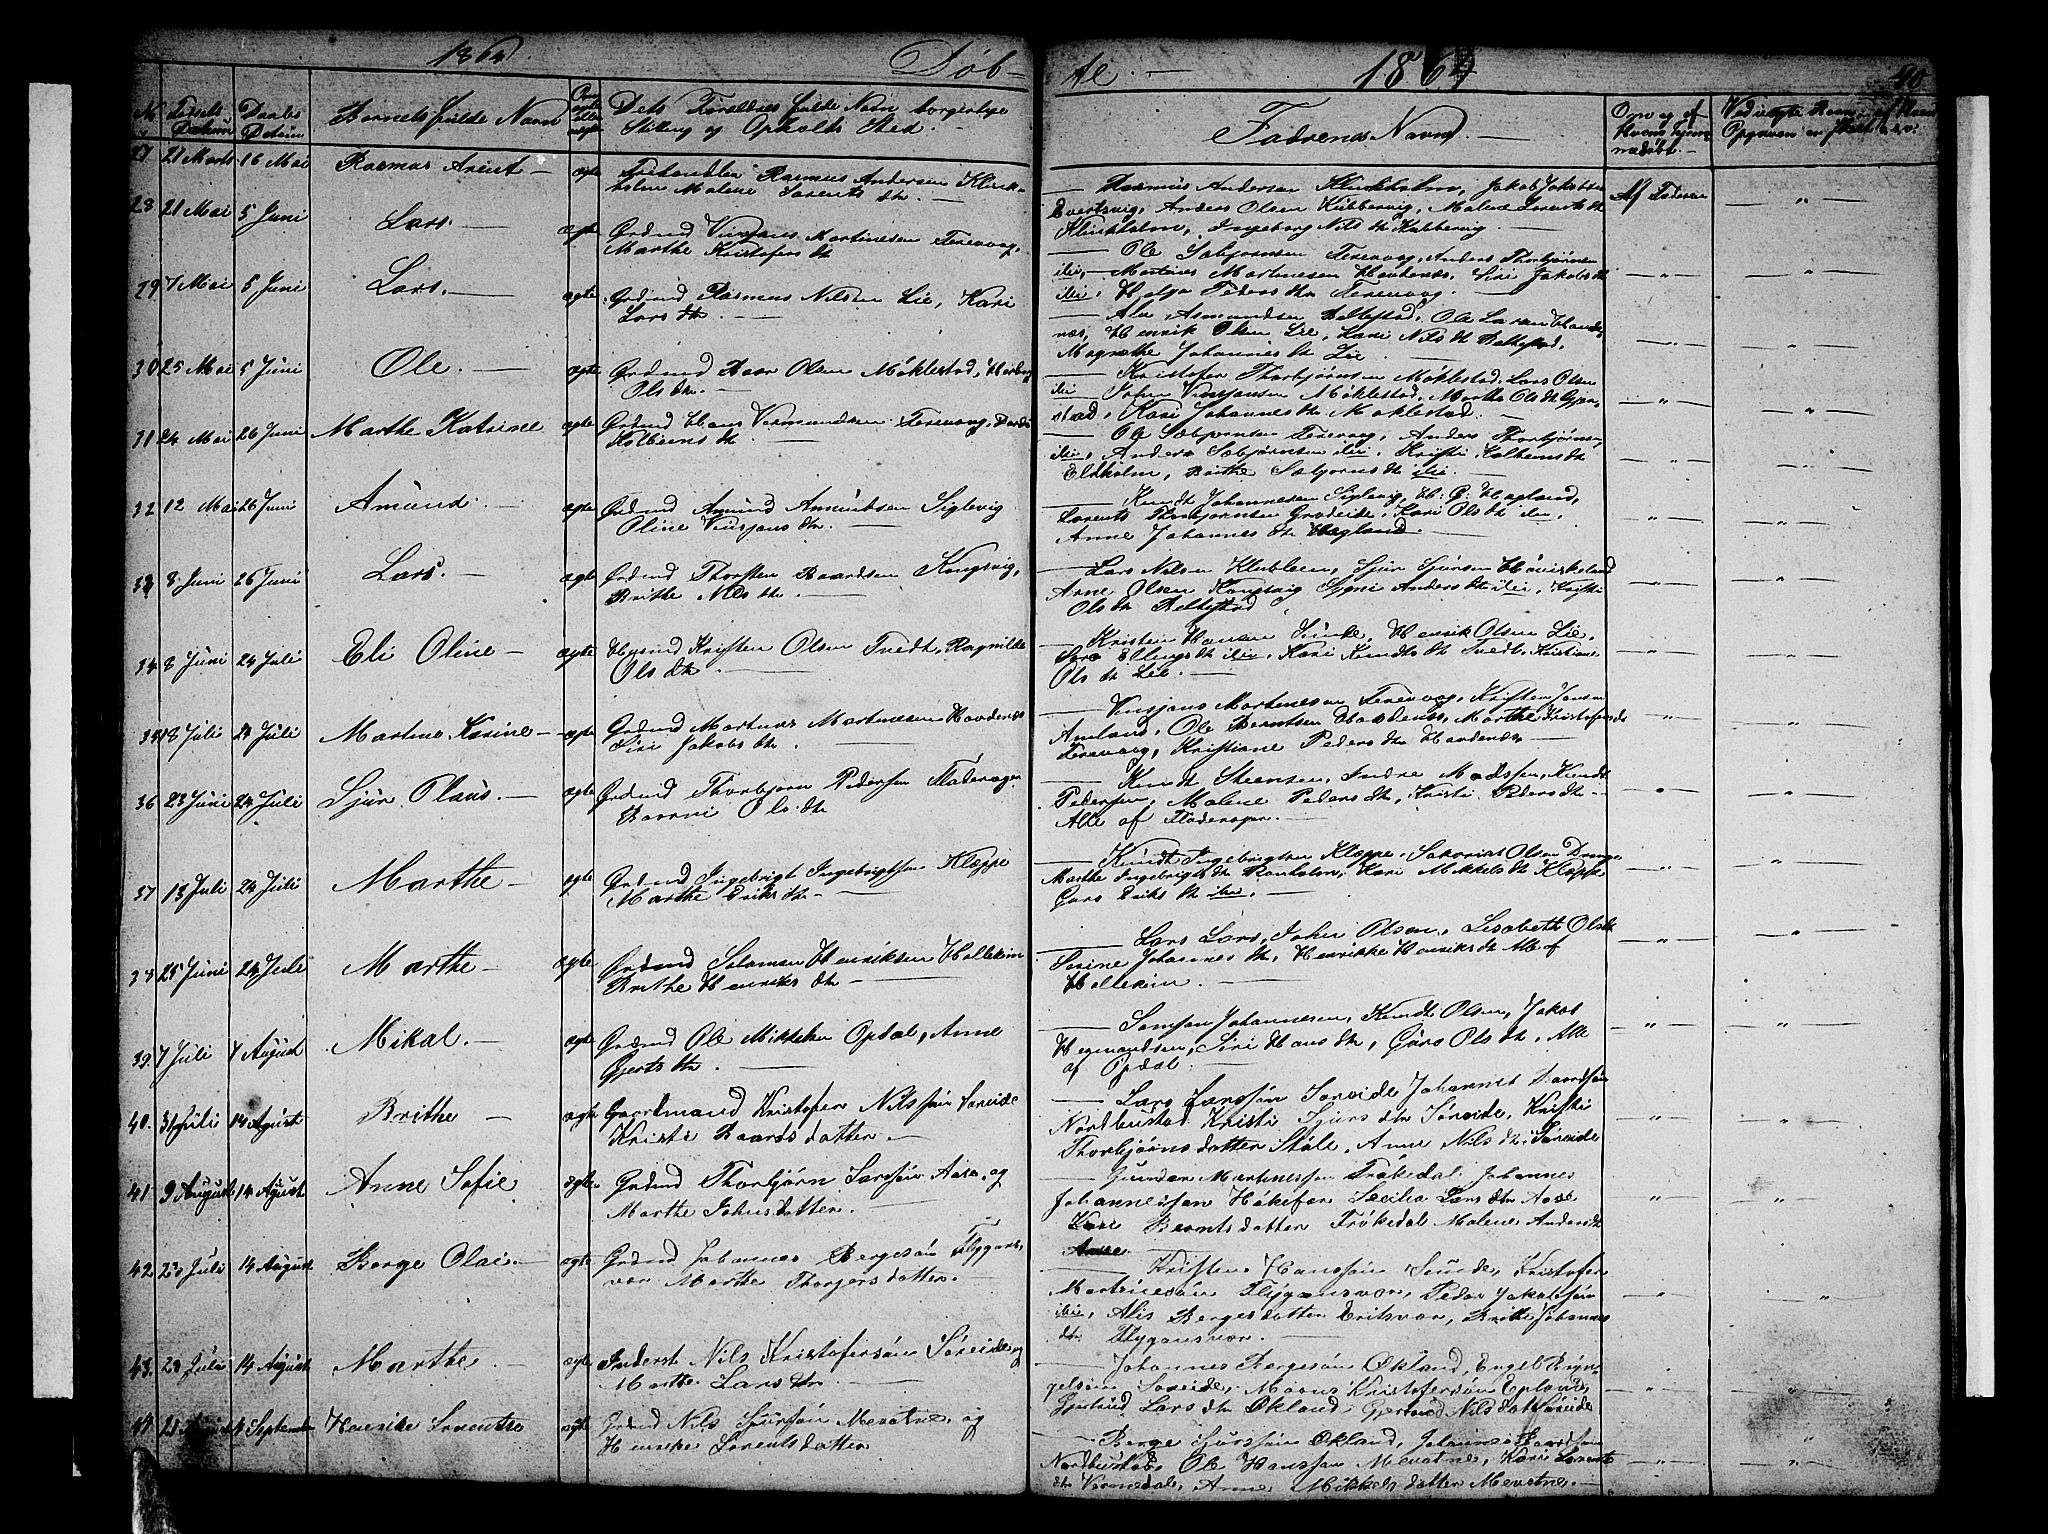 1864. Døb- te. — 1864 40
No Fødsels Datum
Daabs Datum
Barnets fulde Navn
Om ægte eller uægte
Dets Forældres fulde Navn borgerlige
Stilling og Opholds Sted. —
Faderens Navn
Om og af Hvem hjemmedøbt. —
Ved uægte Børn
Opgaven er skeet
27 21 Marts 16 Mai Rasmus Arent — ægte Rasmus Andersen Klink-
holm Malene Lorents dtr. —
— Rasmus Andersen Klinkholm, Jakob Jakobsen
Evertsvig, Anders Olsen Kubbervig, Malene Lorents dtr
Klinkholm, Ingeborg Nils dtr Kubbervig. —
Af Faderen — " —
28 21 Mai 5 Juni Lars. — ægte Grdmd Vinsjans Martinesen Terevaag,
Marthe Kristofers dtr
— Ole Sæbjørnsen Terevaag, Anders Thorbjørnsen
ibi, Martines Martinesen Havdenæs, Siri Jakobs dtr
ibi, Helga Peders dtr Terevaag. —
29 7 Mai 5 Juni Lars. — ægte. Grdmd Rasmus Nilsen Lie, Kari
Lars dtr. —
— Alv Asmundsen Beltestad, Ole Larsen Havde-
næs, Henrik Olsen Lie, Kari Nils dtr Beltestad,
Magrethe Johannes dtr Lie. —
30 25 Mai 5 Juni Ole. — ægte Grdmd Baar Olsen Møklestad,
Ols dtr. —
— Kristofer Thorbjørnsen Møklestad, Lars Olsen
ibi John Vinsjansen Møklestad, Marthe Ols dtr
stad, Kari Johannes dtr Møklestad. —
31 24 Mai 26 Juni Marthe Katrine ægte Grdmd Hans Vermundsen Terevaag,
Kolbeins dtr —
— Ole Sæbjørnsen Terevaag, Anders Thorbjørnsen
ibi, Anders Sæbjørnsen ibi, Kristi Kolbeins dtr
Eldholm, Brithe Sæbjørns dtr ibi. —
32 12 Mai 26 Juni Amund. — ægte Grdmd Amund Amundsen Siglevig
Oline Vinsjans dtr. —
— Knudt Johannesen Siglevig, H. C. Hagland,
Lorents Thorbjørnsen Grødeide, Kari Ols dtr ibi,
Anne Johannes dtr Hagland. —
33 8 Juni 26 Juni Lars. — ægte Grdmd Thorsten Baardsen Kongsvig,
Brithe Nils dtr. —
— Lars Nilsen Klubben, Sjur Sjursen Høviskeland
Arne Olsen Kongsvig Synni Anders dtr ibi, Kristi
Ols dtr Beltestad
34 8 Juni 24 Juli Eli Oline — ægte Husmd Kristen Olsen Tvedt, Ragnilde
Ols dtr. —
— Kristen Hansen Sunde, Henrik Olsen Lie,
Siri Ellings dtr ibi, Kari Knudts dtr Tvedt, Kristiane
Ols dtr Lie. —
35 18 Juli 24 Juli Martine Karine — ægte Grdmd Martines Martinesen Havdenæs
Siri Jakobs dtr. —
— Vinsjans Martinesen Terevaag, Kristen Jansen
Amland, Ole Berntsen Havdenæs, Marthe Kristofers dtr
Terevaag, Kristiane Peders dtr Havdenæs —
36 23 Juni 24 Juli Sjur Olaus. — ægte Grdmd Thorbjørn Pedersen Fladervagen
Ols dtr —
— Knudt Steensen, Indre Madssen, Knudt
Pedersen, Malene Peders dtr, Kristi Peders dtr —
Alle af Fladervagen. —
37 13 Juli 24 Juli Marthe — ægte Grdmd Ingebrigt Ingebrigtsen Klæppe
Marthe Eriks dtr —
— Knudt Ingebrigtsen Klæppe, Sakarias Olsen Drange
Marthe Ingebrigts dtr, Kari Mikkels dtr Klæppe
Guro Eriks dtr ibi. —
38 25 Juni 24 Juli Marthe — ægte Grdmd Salamon Henriksen Hollekim
Brithe Henriks dtr —
— Lars Lars, John Olsen, Lisabeth Ols dtr
Serine Johannes dtr, Henrikke Henriks dtr Alle af
Hollekim. —
39. 7 Juli 7 August Mikal. — ægte Grdmd Ole Mikkelsen Opdal, Anne
Gjerts dtr. —
— Samson Johannesen, Knudt Olsen, Jakob
Hermandsen, Siri Hans dtr, Guro Ols dtr, Alle
af Opdal. —
40. 31 Juli 14 August Brithe — ægte Gaardmand Kristofer Nilssøn Søreide
Kristi Baards datter. —
— Lars Larssøn Søreide Johannes Baardsøn
Nordbustad Kristi Sjurs dtr Søreide, Kristi
Thorbjørns datter Støle, Anne Nils dtr Søreide
41 9 August 14 August Anne Sofie ægte. Grdmd Thorbjørn Larssøn Aase, og
Marthe Johns datter. —
— Gunder Martinessøn Trøkedal Johannes
Johannessøn Høkefær Sæcilia Lars dtr Aase
Kari Bernts datter Trøkedal Malene Anders dtr
Aase. —
42 23 Juli 14 August. Børge Olai. — ægte Grdmd Johannes Børgesøn Flygans-
vær Marthe Thorgers datter. —
— Kristen Hanssøn Sunde, Kristofer
Martinessøn Flygansvær, Peder Jakobssøn
ibi, Alis Børges datter Eriksvær, Brithe Johannes
dtr Flygansvær. —
43. 23 Juli 14 August Marthe. — ægte Inderst Nils Kristofersøn Søreide, og
Marthe Lars dtr. —
— Johannes Børgesøn Økland, Engel Bryn-
gelsøn Søreide, Mons Kristofersøn Epland,
Gjertrud Lars dtr Økland Gjertrud Nils dat Søreide
44 21 August 4 September Henrikke Lorentse ægte Grdmd Nils Sjursøn Mevatne, og
Henrikke Lorents datter
— Børge Sjurssøn Økland, Johannes Baardsøn
Nordbustad, Ole Hanssøn Mevatne, Kari Lorents
dtr Vernedal, Anne Mikkels datter Mevatne. —